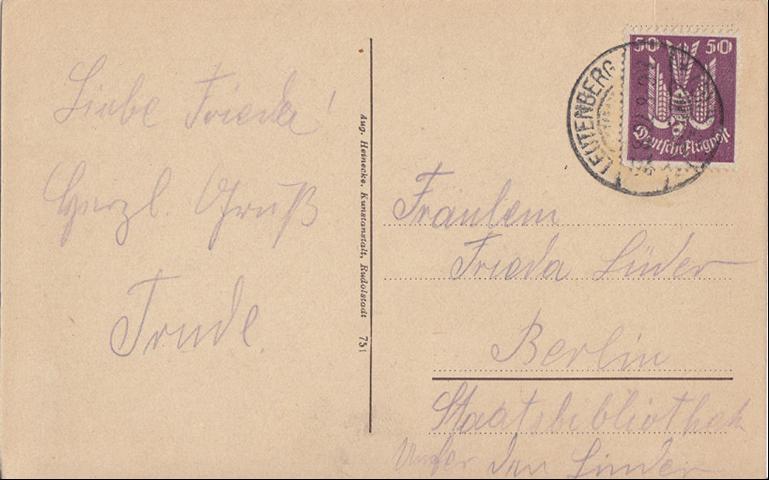 Liebe Frieda!
Herzl. Gruß
Trude.
Aug. Heinecke, Kunstanstalt, Rudolstadt 751
50 50
Deutsche Flugpost
LEUTENBERG
Fräulein
Frieda Lüder
Berlin
Staatsbibliothek
Unter den Linden